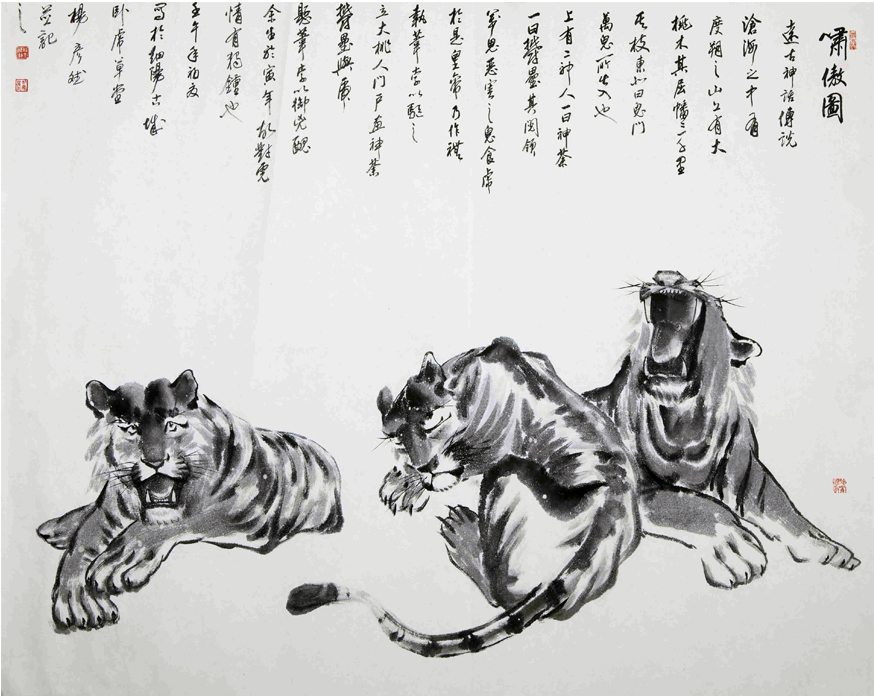 嘯傲圖
遠古神話傳説
滄海之中有
度朔之山上有大
桃木其屈幡三千里
其枝東北曰鬼門
萬鬼所出入也
上有二神人一曰神荼
一曰欝壘其閲領
眾鬼惡害之鬼食虎
於是皇帝乃作禮
執葦索以驅之
立大桃人門戸畫神荼
欝壘與虎
懸葦索以御兇魅
余生於寅年故對虎
情有獨鍾也
壬午年初夏
寫於細陽古城
卧虎草堂
楊彦
並記
之